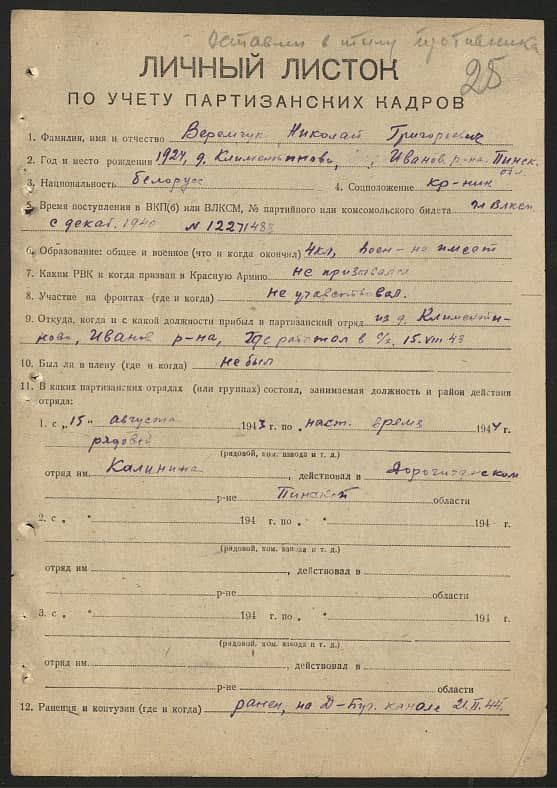 Оставлен в тылу противника
25
ЛИЧНЫЙ ЛИСТОК
ПО УЧЕТУ ПАРТИЗАНСКИХ КАДРОВ
1. Фамилия, имя и отчество Веремчук Николай Григорьевич
2. Год и место рождения 1924, д. Климентиново, Иванов р-на Пинск.
обл.
3. Национальность белорус 4. Соцположение кр-нин
5. Время поступления в ВКП(б) или ВЛКСМ, № партийного или комсомольского билета чл Влксм
с декаб. 1940 N 12271483
6. Образование: общее и военное (что и когда окончил) 4кл, воен- не имеет
7. Каким РВК и когда призван в Красную Армию не призывался
8. Участие на фронтах (где и когда) не участвовал.
9. Откуда, когда и с какой должности прибыл в партизанский отряд из д. Климентиново,
Иванов р-на, где работал в с/х 15.VIII 43
10. Был ли в плену (где и когда) не был
11. В каких партизанских отрядах (или группах) состоял, занимаемая должность и район действия
отряда:
1. с „15" августа 1943 г. по наст. время 1944 г.
рядовой
(рядовой, ком. взвода и т. д.)
отряд им Калинина, действовал в Дорогичинском
р-не Пинской области
2. с „ " 194 г. по „ " 194 г.
(рядовой, ком. взвода и т. д.)
отряд им , действовал в
р-не области
3. с „ " 194 г. по „ " 194 г.
(рядовой, ком. взвода и т. д.)
отряд им , действовал в
р-не области
12. Ранения и контузии (где и когда) ранен, на Д-Буг. канале 21.II.44.